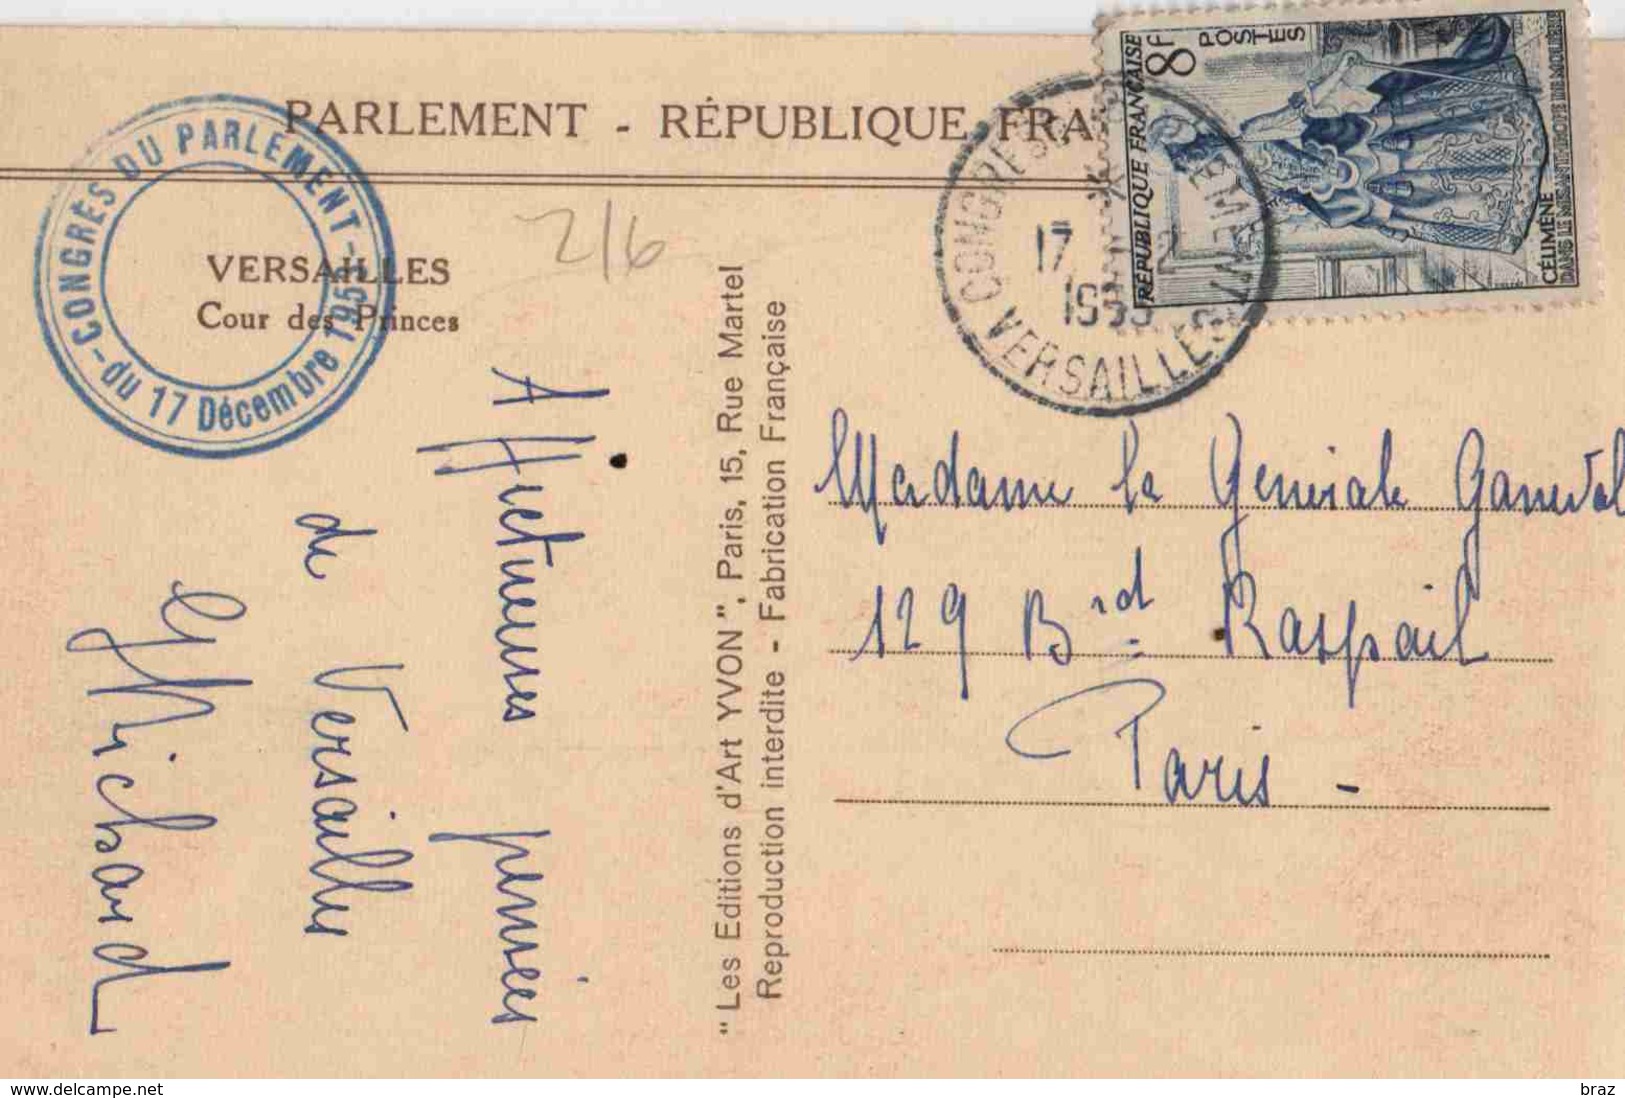 PARLEMENT - RÉPUBLIQUE FRA
CONGRÈS DU PARLEMENT - du 17 Décembre 1953 -
VERSAILLES
Cour des Princes
216
CONGRES DU PARLEMENT
17 12
1953
VERSAILLES
RÉPUBLIQUE FRANÇAISE
8F
POSTES
CÉLIMÈNE
DANS LE MISANTHROPE DE MOLIÈRE
Affectueuses pensées
de Versailles
GMichard
" Les Editions d'Art YVON ", Paris, 15, Rue Martel
Reproduction interdite - Fabrication Française
Madame la Générale Ganeval
129 Brd Raspail
Paris -
delcampe.net
braz